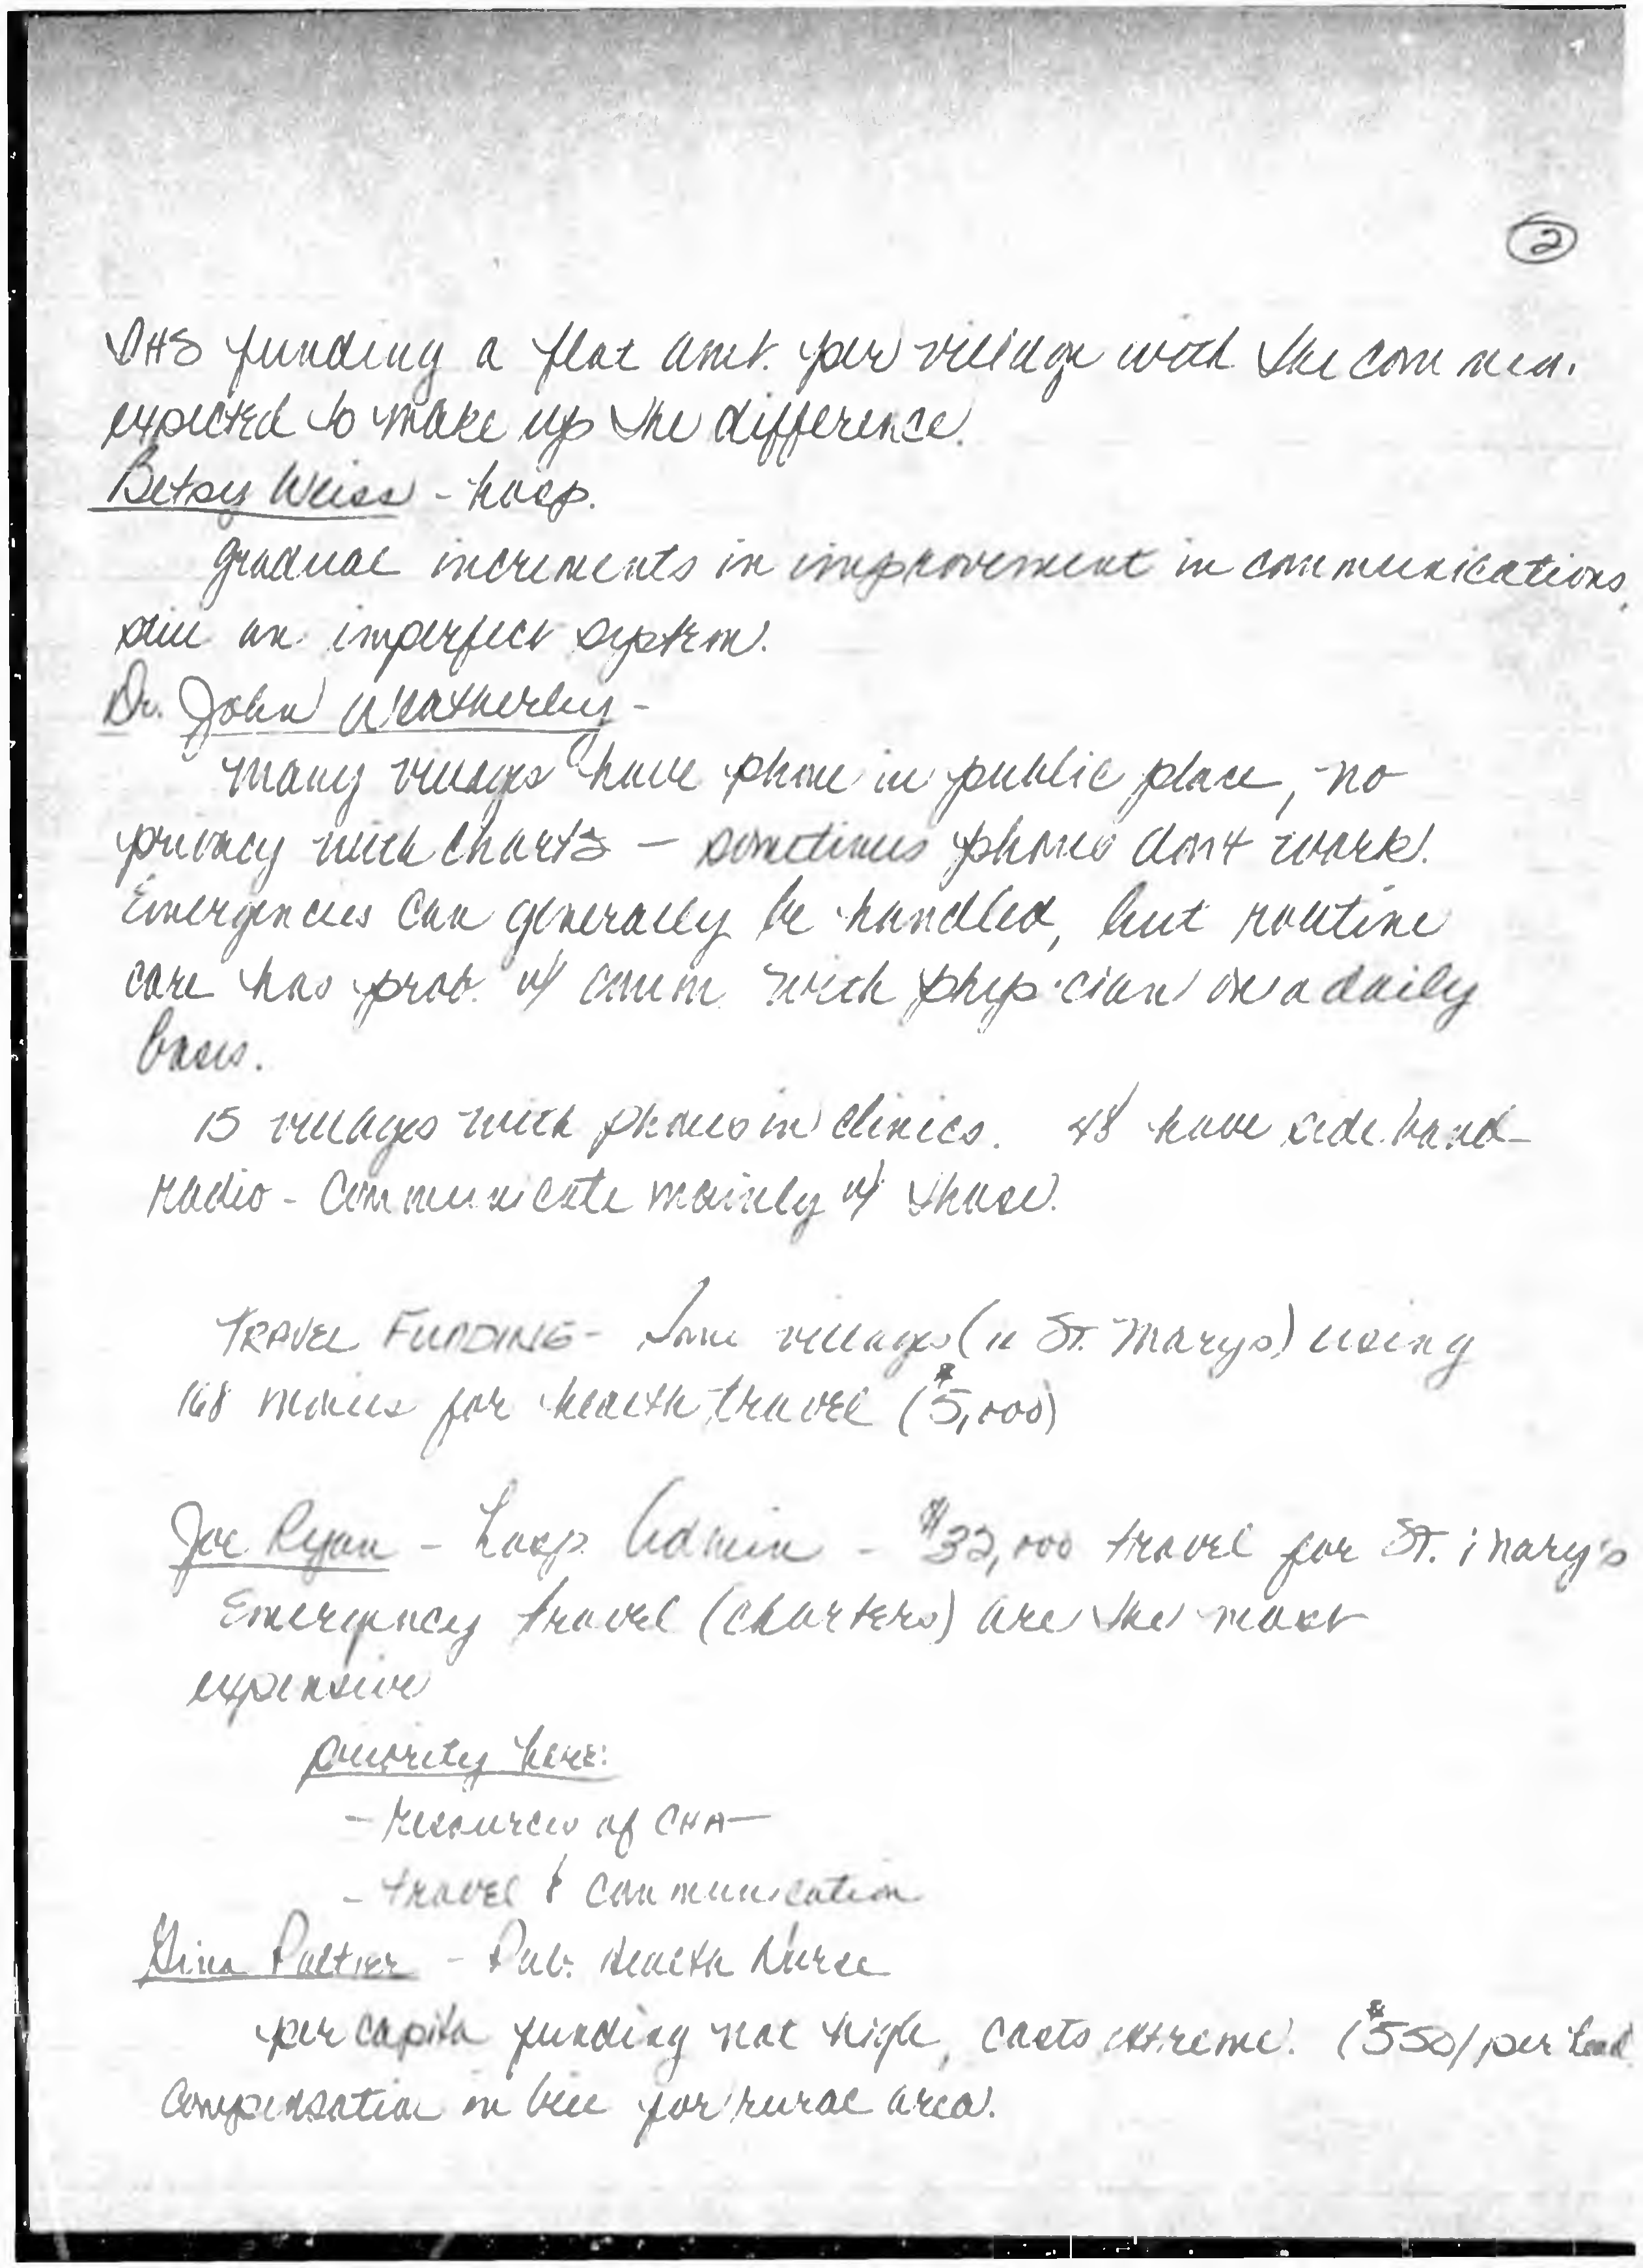 ②
funding a flat amt. per village with the commun.
expected to make up the difference.
Betsy Weiss - hosp.
gradual increments in improvement in communications,
still an imperfect system.
Dr. John Weatherby -
many villages have phone in public place, no
privacy with charts - sometimes phones don't work.
Emergencies can generally be handled, but routine
care has prob. w/ comm. with physician on a daily
basis.
15 villages with phones in clinics. 48 have side band
radio - communicate mainly w/ those.
TRAVEL FUNDING - Some villages (ie St. Marys) using
168 monies for health travel ($5,000)
Joe Ryan - Hosp. Admin - $32,000 travel for St. Mary's
Emergency travel (charters) are the most
expensive
priority here:
- resources of CHA -
- travel & communication
Gina - Pub. Health Nurse
per capita funding not high, costs extreme. ($550/per head
compensation in bill for rural area.